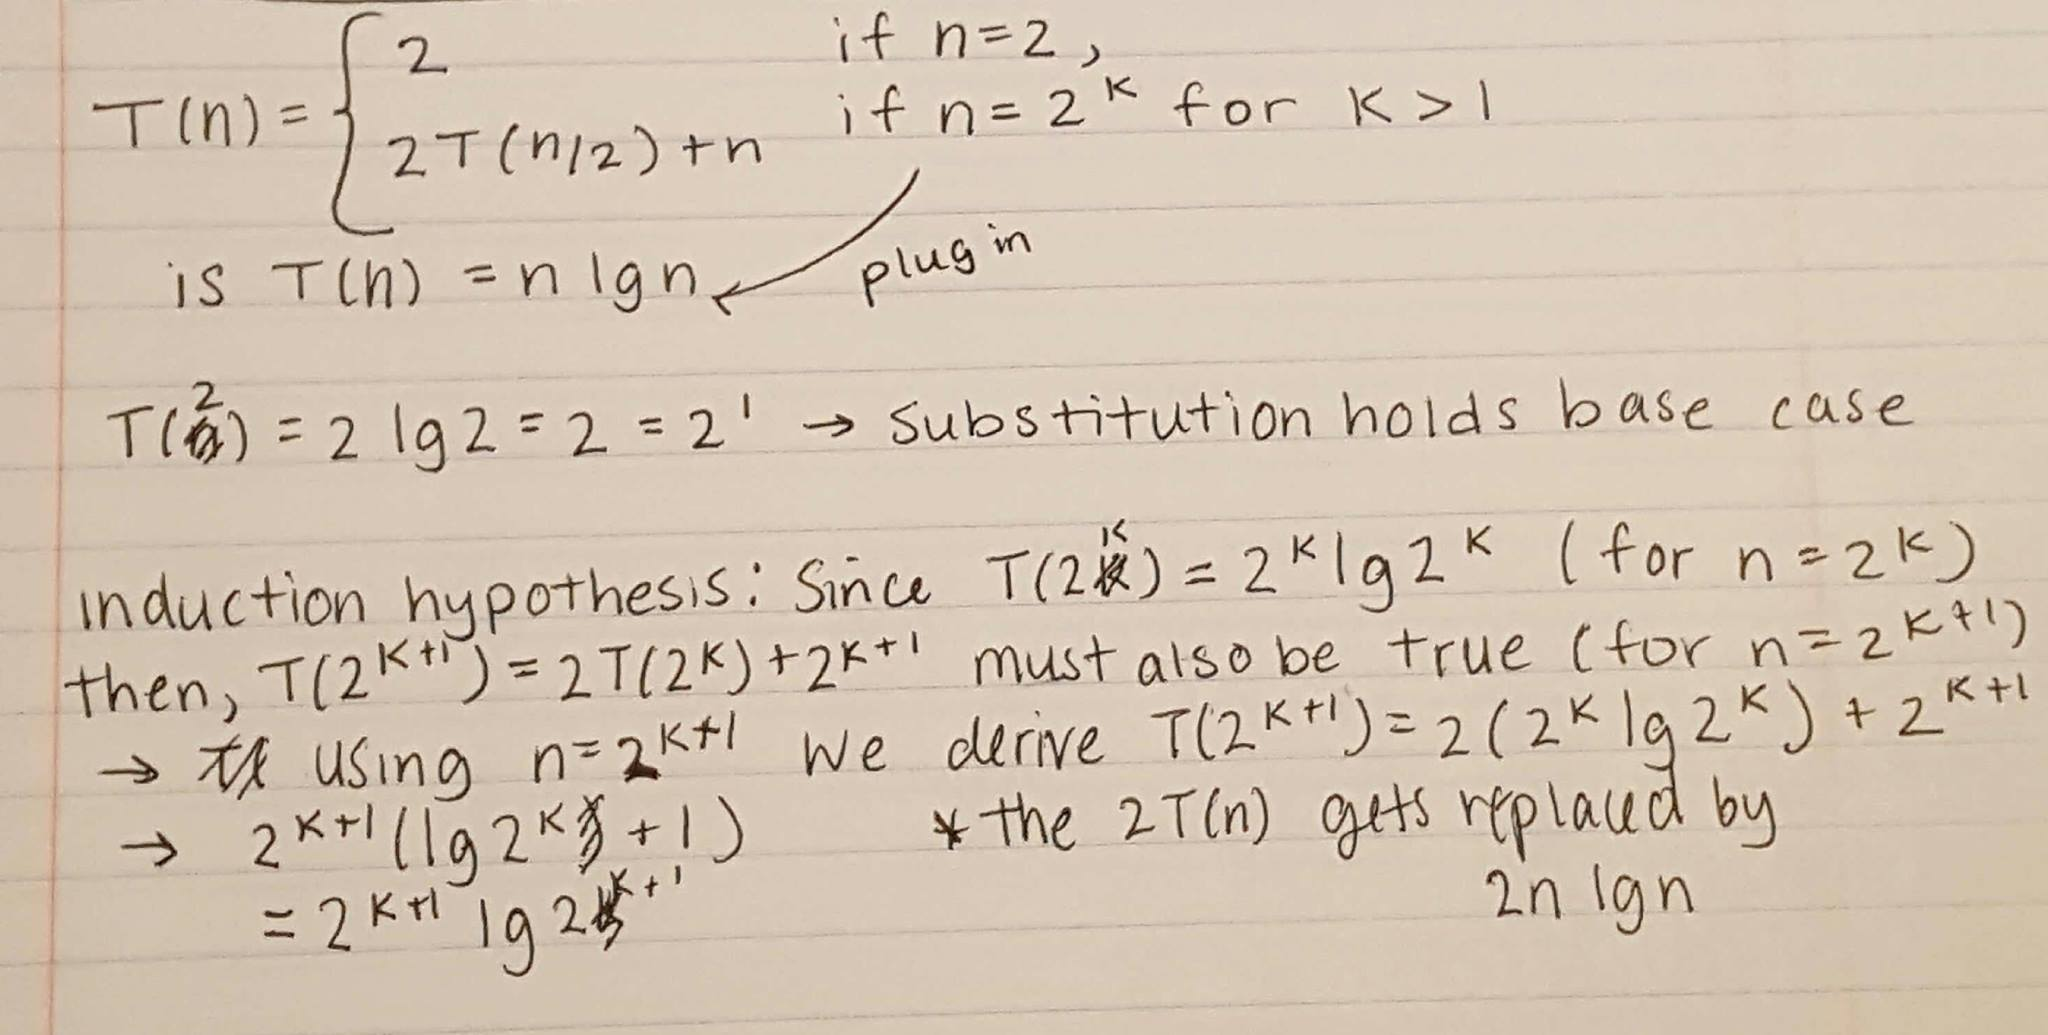 T(n) = { 2 if n=2,
2T(n/2)+n if n=2^k for k>1
is T(n) = n lg n
plug in
T(2) = 2 lg 2 = 2 = 2^1 → substitution holds base case
induction hypothesis: Since T(2^k) = 2^k lg 2^k (for n=2^k)
then, T(2^k+1) = 2T(2^k)+2^k+1 must also be true (for n=2^k+1)
→ using n=2^k+1 we derive T(2^k+1)=2(2^k lg 2^k)+2^k+1
→ 2^k+1(lg 2^k+1) * the 2T(n) gets replaced by
= 2^k+1 lg 2^k+1 2n lgn